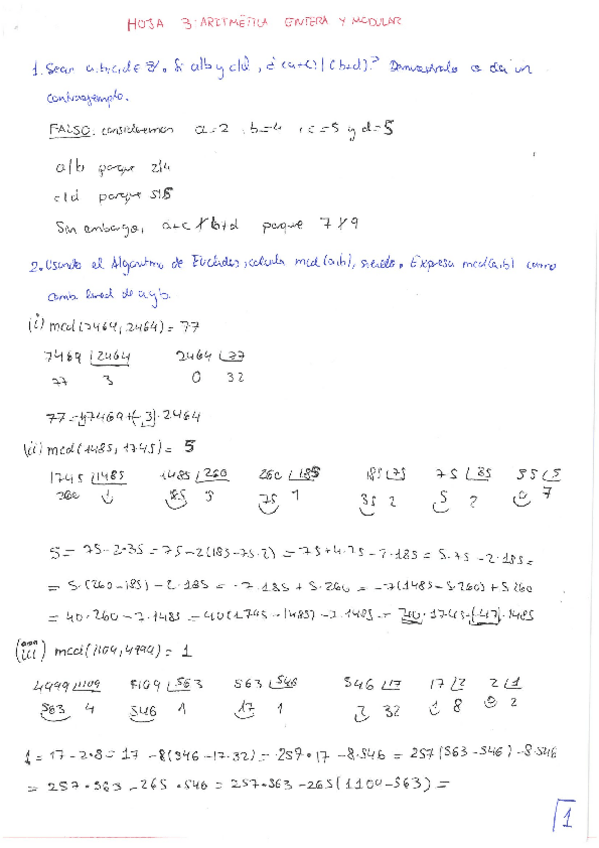 HOJA 3: ARITMÉTICA ENTERA Y MODULAR
1. Sean a,b,c,d ∈ Z. Si a|b y c|d, ¿(a+c)|(b+d)? Demuéstralo o da un
contraejemplo.
FALSO: consideremos a=2, b=4, c=5 y d=5
a|b porque 2|4
c|d porque 5|5
Sin embargo, a+c ∤ b+d porque 7∤9
2. Usando el Algoritmo de Euclides, calcula mcd(a,b), siendo. Expresa mcd(a,b) como
comb lineal de a y b.
(i) mcd(7469, 2464) = 77
7469 | 2464 2464 | 77
77 3 0 32
77 = 1·7469 + (-3)·2464
(ii) mcd(1485, 1745) = 5
1745 | 1485 1485 | 260 260 | 185 185 | 75 75 | 35 35 | 5
260 1 185 5 75 1 35 2 5 2 0 7
5 = 75-2·35 = 75-2(185-75·2) = 75+4·75-2·185 = 5·75-2·185 =
= 5·(260-185)-2·185 = -7·185+5·260 = -7(1485-5·260)+5·260
= 40·260-7·1485 = 40(1745-1485)-7·1485 = 40·1745+(-47)·1485
(iii) mcd(1109, 4999) = 1
4999 | 1109 1109 | 563 563 | 546 546 | 17 17 | 2 2 | 1
563 4 546 1 17 1 2 32 1 8 0 2
1 = 17-2·8 = 17-8(546-17·32) = 257·17-8·546 = 257(563-546)-8·546
= 257·563-265·546 = 257·563-265(1109-563) =
1